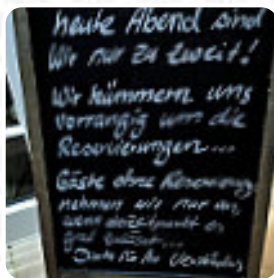 heute Abend sind
Wir nur zu zweit!
Wir kümmern uns
vorrangig um die
Reservierungen...
Gäste ohne Reservierung
nehmen wir nur an,
wenn
Danke für Ihr Verständnis